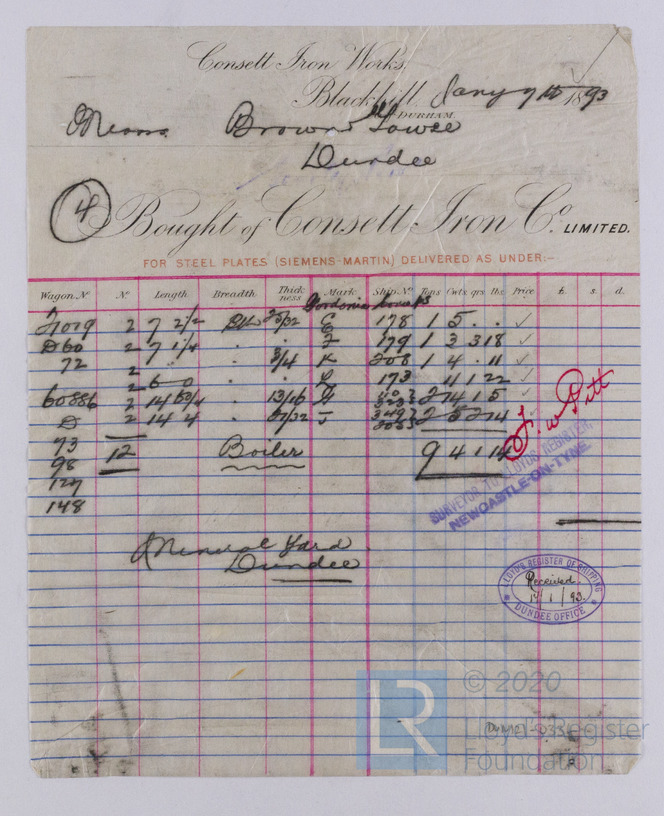 Consett Iron Works,
Blackhill, Jany 9th 1893
DURHAM.
Messrs Brown
Dundee
4
Bought of Consett Iron Co. LIMITED.
FOR STEEL PLATES (SIEMENS-MARTIN) DELIVERED AS UNDER:-
Wagon No No Length Breadth Thickness Mark Ship. No Tons Cwts qrs lbs Price £ s. d.
2 7 2/2 25/32 178 1 5 . . ✓
D60 2 7 1/4 . . 179 1 3 3 18 ✓
72 2 . 3/4 K 208 1 4 . 11 ✓
2 6 0 . . L 173 11 1 22 ✓
60886 2 13/16 2 4 1 5
D 2 14 4 . 27/32 J 2 5 2 14
73
98 12 Boiler 9 4 1 14
127
148
F. W. Pitt
SURVEYOR TO LLOYDS REGISTER,
NEWCASTLE-ON-TYNE
Mineral Yard
Dundee
LLOYD'S REGISTER OF SHIPPING
Received
/1/93
DUNDEE OFFICE
LR
© 2020
Lloyd's Register
Foundation